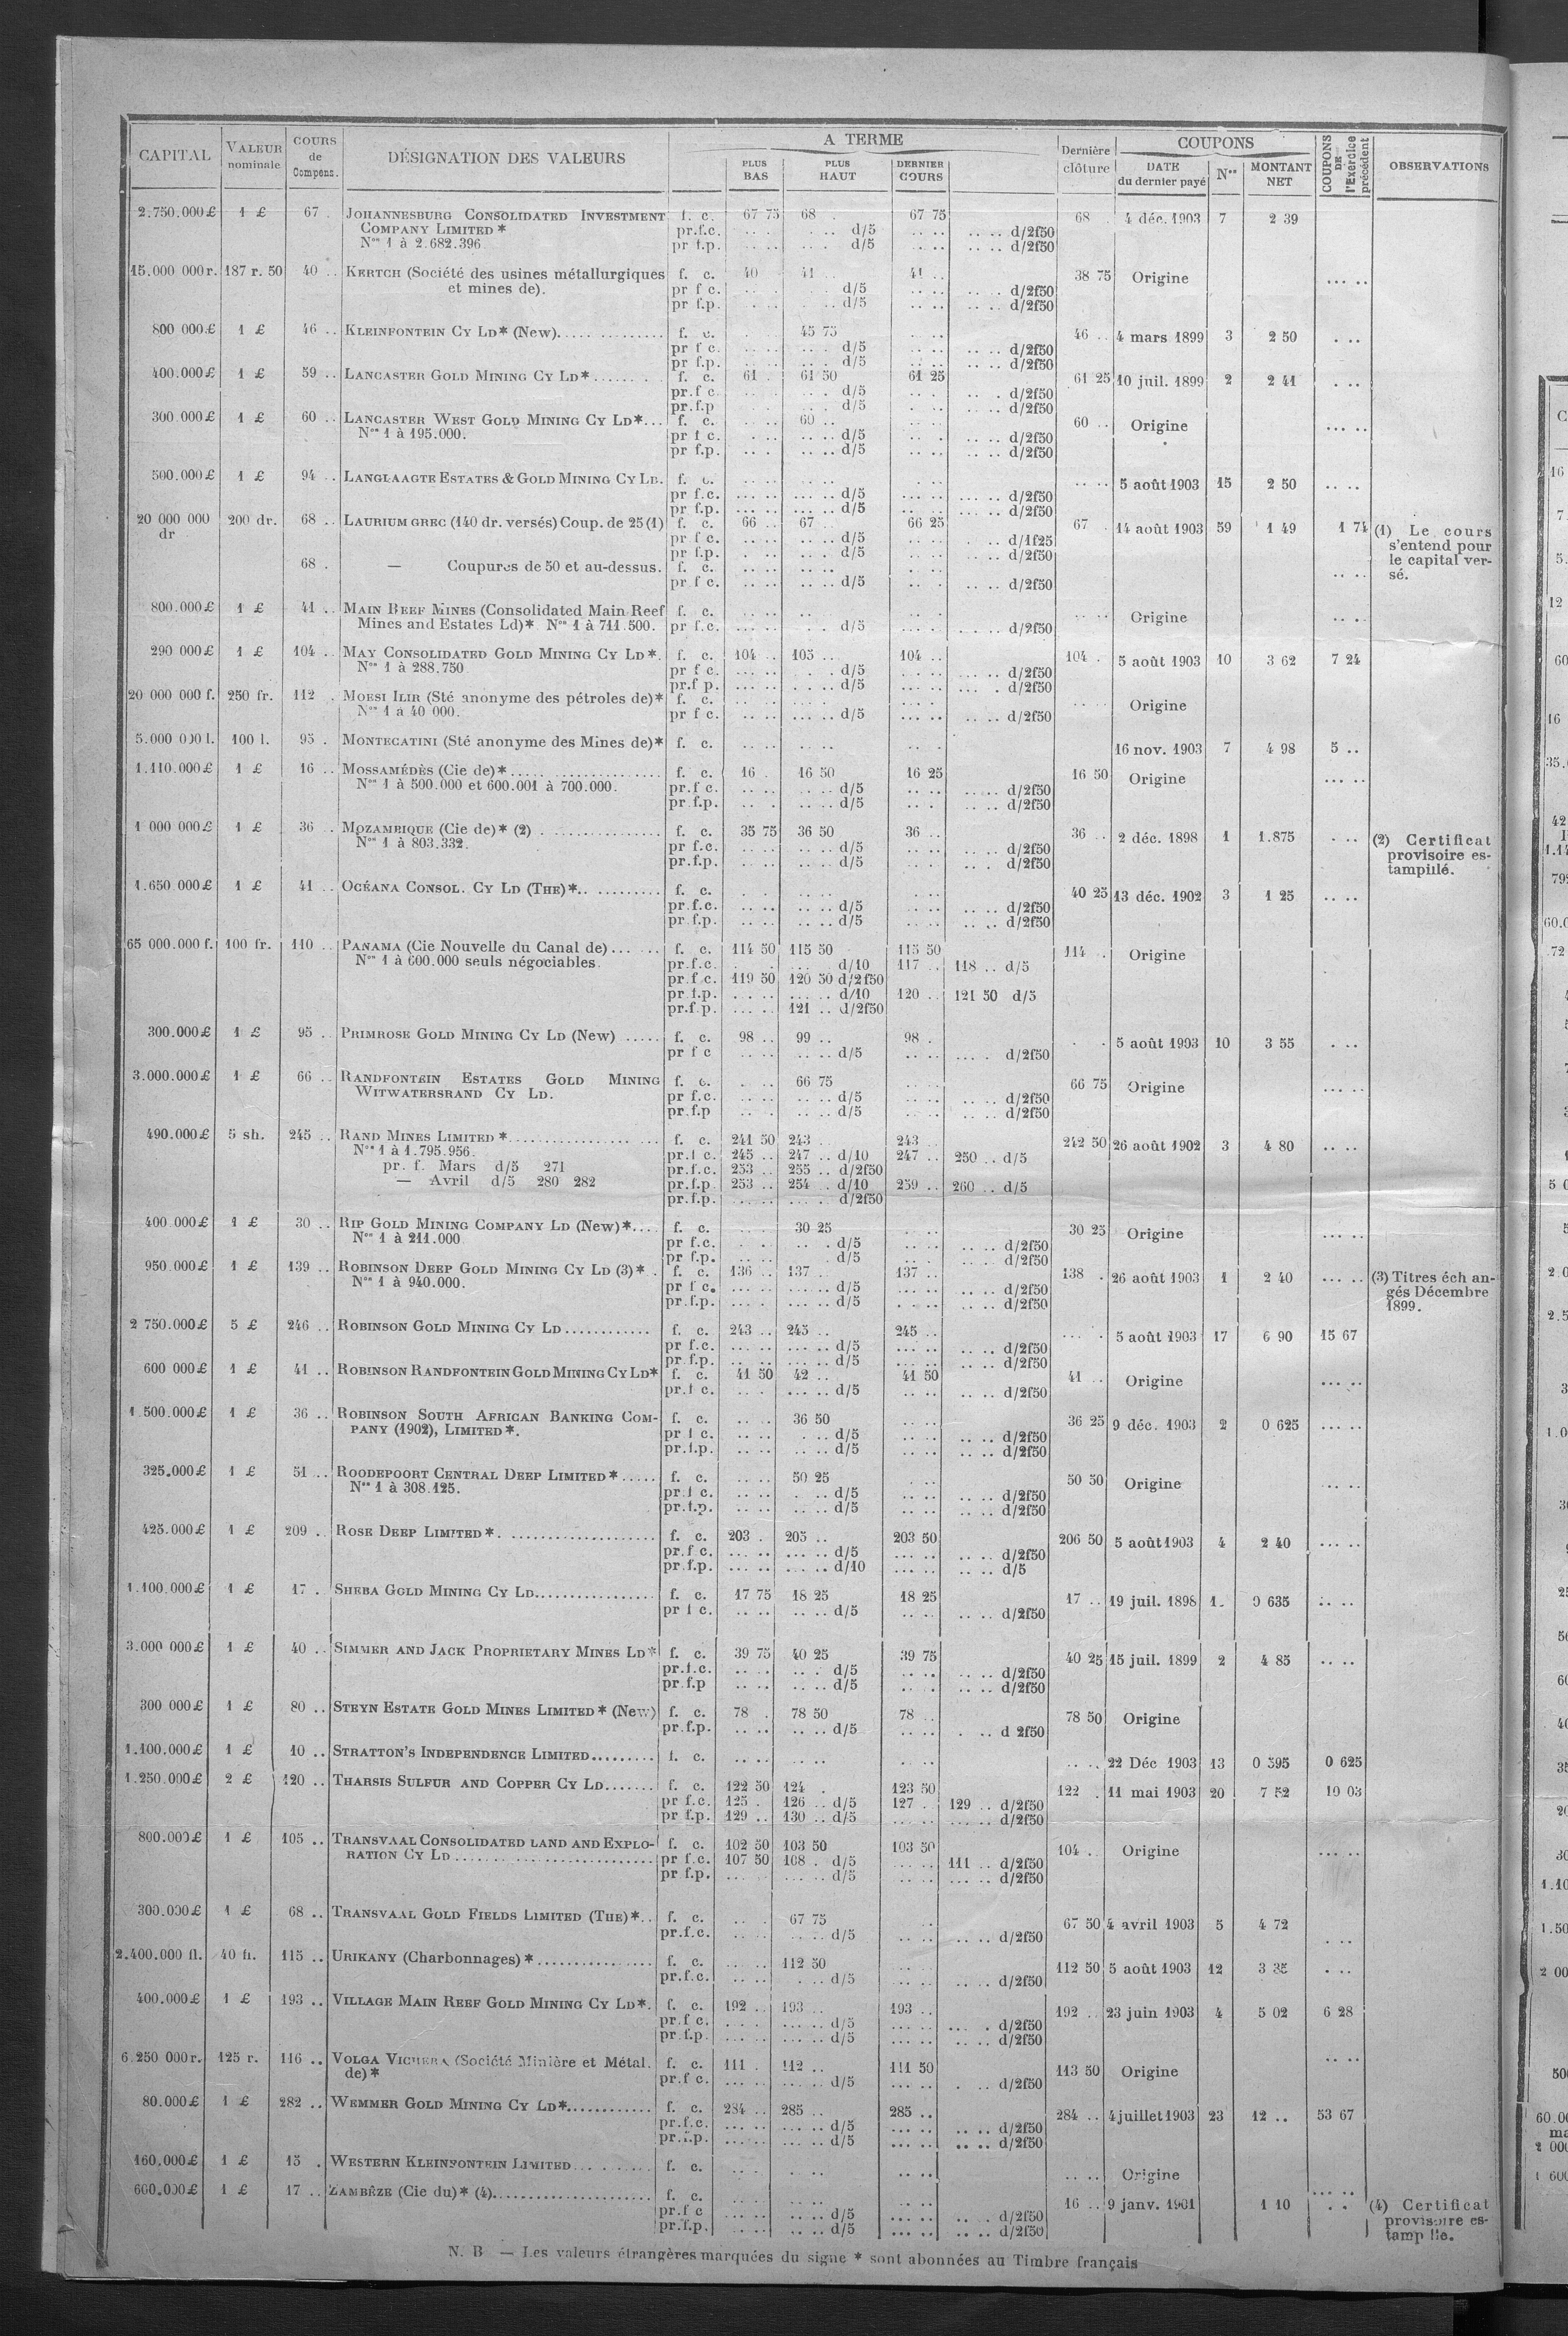 CAPITAL VALEUR nominale COURS de Compens. DÉSIGNATION DES VALEURS A TERME PLUS BAS PLUS HAUT DERNIER COURS Dernière clôture COUPONS DATE du dernier payé Nos MONTANT NET COUPONS DE l'Exercice précédent OBSERVATIONS
2.750.000£ 1 £ 67 . JOHANNESBURG CONSOLIDATED INVESTMENT f. c. 67 75 68 . 67 75 68 . 4 déc. 1903 7 2 39
COMPANY LIMITED * pr.f.c. d/5 d/2f50
Nos 1 à 2.682.396. pr f.p. d/5 d/2f50
15.000 000r. 187 r. 50 40 .. KERTCH (Société des usines métallurgiques f. c. 40 41 .. 41 .. 38 75 Origine
et mines de). pr f c. d/5 d/2f50
pr f.p. d/5 d/2f50
800 000£ 1 £ 46 .. KLEINFONTEIN CY LD* (New) f. c. 45 75 46 .. 4 mars 1899 3 2 50
pr f c. d/5 d/2f50
pr f.p. d/5 d/2f50
400.000£ 1 £ 59 .. LANCASTER GOLD MINING CY LD* f. c. 61 . 61 50 61 25 61 25 10 juil. 1899 2 2 41
pr.f c. d/5 d/2f50
pr.f.p d/5 d/2f50
300.000£ 1 £ 60 .. LANCASTER WEST GOLD MINING CY LD* f. c. 60 .. 60 .. Origine
Nos 1 à 195.000. pr f c. d/5 d/2f50
pr f.p. d/5 d/2f50
500.000£ 1 £ 94 .. LANGLAAGTE ESTATES & GOLD MINING CY LD. f. c. 5 août 1903 15 2 50
pr f.c. d/5 d/2f50
pr f.p. d/5 d/2f50
20 000 000 200 dr. 68 .. LAURIUM GREC (140 dr. versés) Coup. de 25 (1) f. c. 66 .. 67 .. 66 25 67 . 14 août 1903 59 1 49 1 74 (1) Le cours
dr pr f c. d/5 d/1f25 s'entend pour
pr f.p. d/5 d/2f50 le capital ver-
68 . — Coupures de 50 et au-dessus. f. c. sé.
pr f c. d/5 d/2f50
800.000£ 1 £ 41 .. MAIN REEF MINES (Consolidated Main Reef f. c. Origine
Mines and Estates Ld)* Nos 1 à 711.500. pr f.c. d/5 d/2f50
290 000£ 1 £ 104 .. MAY CONSOLIDATED GOLD MINING CY LD*. f. c. 104 .. 105 .. 104 .. 104 . 5 août 1903 10 3 62 7 24
Nos 1 à 288.750 pr f c. d/5 d/2f50
pr.f p. d/5 d/2f50
20 000 000 f. 250 fr. 112 . MOESI ILIR (Sté anonyme des pétroles de)* f. c. Origine
Nos 1 à 40 000. pr f c. d/5 d/2f50
5.000 000 l. 100 l. 95 . MONTECATINI (Sté anonyme des Mines de)* f. c. 16 nov. 1903 7 4 98 5 ..
1.110.000£ 1 £ 16 .. MOSSAMÉDÈS (Cie de)* f. c. 16 . 16 50 16 25 16 50 Origine
Nos 1 à 500.000 et 600.001 à 700.000. pr.f c. d/5 d/2f50
pr f.p. d/5 d/2f50
1 000 000£ 1 £ 36 .. MOZAMBIQUE (Cie de)* (2) f. c. 35 75 36 50 36 .. 36 .. 2 déc. 1898 1 1.875 (2) Certificat
Nos 1 à 803.332. pr f.c. d/5 d/2f50 provisoire es-
pr.f.p. d/5 d/2f50 tampillé.
1.650.000£ 1 £ 41 .. OCÉANA CONSOL. CY LD (THE)* f. c. 40 25 13 déc. 1902 3 1 25
pr.f.c. d/5 d/2f50
pr.f.p. d/5 d/2f50
65 000.000 f. 100 fr. 110 .. PANAMA (Cie Nouvelle du Canal de) f. c. 114 50 115 50 115 50 114 . Origine
Nos 1 à 600.000 seuls négociables. pr.f.c. d/10 117 .. 118 .. d/5
pr.f c. 119 50 120 50 d/2f50
pr f.p. d/10 120 .. 121 50 d/5
pr.f.p. 121 .. d/2f50
300.000£ 1 £ 95 .. PRIMROSE GOLD MINING CY LD (New) f. c. 98 .. 99 .. 98 . 5 août 1903 10 3 55
pr f c d/5 d/2f50
3.000.000£ 1 £ 66 .. RANDFONTEIN ESTATES GOLD MINING f. c. 66 75 66 75 Origine
WITWATERSRAND CY LD. pr f.c. d/5 d/2f50
pr.f.p d/5 d/2f50
490.000£ 5 sh. 245 .. RAND MINES LIMITED * f. c. 241 50 243 .. 243 .. 242 50 26 août 1902 3 4 80
Nos 1 à 1.795.956. pr.f c. 245 .. 247 .. d/10 247 .. 250 .. d/5
pr. f. Mars d/5 271 pr.f.c. 253 .. 255 .. d/2f50
— Avril d/5 280 282 pr.f.p 253 .. 254 . d/10 259 .. 260 .. d/5
pr.f.p. d/2f50
400 000£ 1 £ 30 .. RIP GOLD MINING COMPANY LD (New)* f. c. 30 25 30 25 Origine
Nos 1 à 211.000 pr f.c. d/5 d/2f50
pr f.p. d/5 d/2f50
950.000£ 1 £ 139 .. ROBINSON DEEP GOLD MINING CY LD (3)* . f. c. 136 .. 137 .. 137 .. 138 . 26 août 1903 1 2 40 (3) Titres échan-
Nos 1 à 940.000. pr f c. d/5 d/2f50 gés Décembre
pr.f.p. d/5 d/2f50 1899.
2 750.000£ 5 £ 246 .. ROBINSON GOLD MINING CY LD f. c. 243 .. 245 .. 245 .. 5 août 1903 17 6 90 15 67
pr f.c. d/5 d/2f50
pr f.p. d/5 d/2f50
600 000£ 1 £ 41 .. ROBINSON RANDFONTEIN GOLD MINING CY LD* f. c. 41 50 42 .. 41 50 41 .. Origine
pr.f c. d/5 d/2f50
1 500.000£ 1 £ 36 .. ROBINSON SOUTH AFRICAN BANKING COM- f. c. 36 50 36 25 9 déc. 1903 2 0 625
PANY (1902), LIMITED *. pr f c. d/5 d/2f50
pr.f.p. d/5 d/2f50
325.000£ 1 £ 51 .. ROODEPOORT CENTRAL DEEP LIMITED * f. c. 50 25 50 50 Origine
Nos 1 à 308.125. pr.f c. d/5 d/2f50
pr.f.p. d/5 d/2f50
425.000£ 1 £ 209 .. ROSE DEEP LIMITED *. f. c. 203 . 205 .. 203 50 206 50 5 août 1903 4 2 40
pr.f c. d/5 d/2f50
pr.f.p. d/10 d/5
1.100.000£ 1 £ 17 . SHEBA GOLD MINING CY LD f. c. 17 75 18 25 18 25 17 .. 19 juil. 1898 1 0 635
pr f c. d/5 d/2f50
3.000 000£ 1 £ 40 .. SIMMER AND JACK PROPRIETARY MINES LD* f. c. 39 75 40 25 39 75 40 25 15 juil. 1899 2 4 85
pr.f.c. d/5 d/2f50
pr f.p d/5 d/2f50
300 000£ 1 £ 80 .. STEYN ESTATE GOLD MINES LIMITED * (New) f. c. 78 . 78 50 78 .. 78 50 Origine
pr.f.p. d/5 d 2f50
1.100.000£ 1 £ 10 .. STRATTON'S INDEPENDENCE LIMITED f. c. 22 Déc 1903 13 0 595 0 625
1.250.000£ 2 £ 120 .. THARSIS SULFUR AND COPPER CY LD f. c. 122 50 124 . 123 50 122 . 11 mai 1903 20 7 52 10 03
pr f.c. 125 . 126 .. d/5 127 . 129 .. d/2f50
pr f.p. 129 .. 130 .. d/5 d/2f50
800.000£ 1 £ 105 .. TRANSVAAL CONSOLIDATED LAND AND EXPLO- f. c. 102 50 103 50 103 50 104 .. Origine
RATION CY LD pr f.c. 107 50 108 . d/5 111 .. d/2f50
pr f.p. d/5 d/2f50
300.000£ 1 £ 68 .. TRANSVAAL GOLD FIELDS LIMITED (THE)* f. c. 67 75 67 50 4 avril 1903 5 4 72
pr.f.c. d/5 d/2f50
2.400.000 fl. 40 fl. 115 .. URIKANY (Charbonnages) * f. c. 112 50 112 50 5 août 1903 12 3 35
pr.f.c. d/5 d/2f50
400.000£ 1 £ 193 .. VILLAGE MAIN REEF GOLD MINING CY LD*. f. c. 192 .. 193 .. 193 .. 192 .. 23 juin 1903 4 5 02 6 28
pr f c. d/5 d/2f50
pr f.p. d/5 d/2f50
6 250 000r. 125 r. 116 .. VOLGA VICHERA (Société Minière et Métal. f. c. 111 . 112 .. 111 50 113 50 Origine
de)* pr.f c. d/5 d/2f50
80.000£ 1 £ 282 .. WEMMER GOLD MINING CY LD* f. c. 284 .. 285 .. 285 .. 284 .. 4 juillet 1903 23 12 .. 53 67
pr.f.c. d/5 d/2f50
pr.f.p. d/5 d/2f50
160.000£ 1 £ 15 . WESTERN KLEINFONTEIN LIMITED f. c. Origine
600.000£ 1 £ 17 .. ZAMBÈZE (Cie du)* (4) f. c. 16 .. 9 janv. 1901 1 10 (4) Certificat
pr.f c d/5 d/2f50 provisoire es-
pr.f.p. d/5 d/2f50 tampillé.
N. B — Les valeurs étrangères marquées du signe * sont abonnées au Timbre français